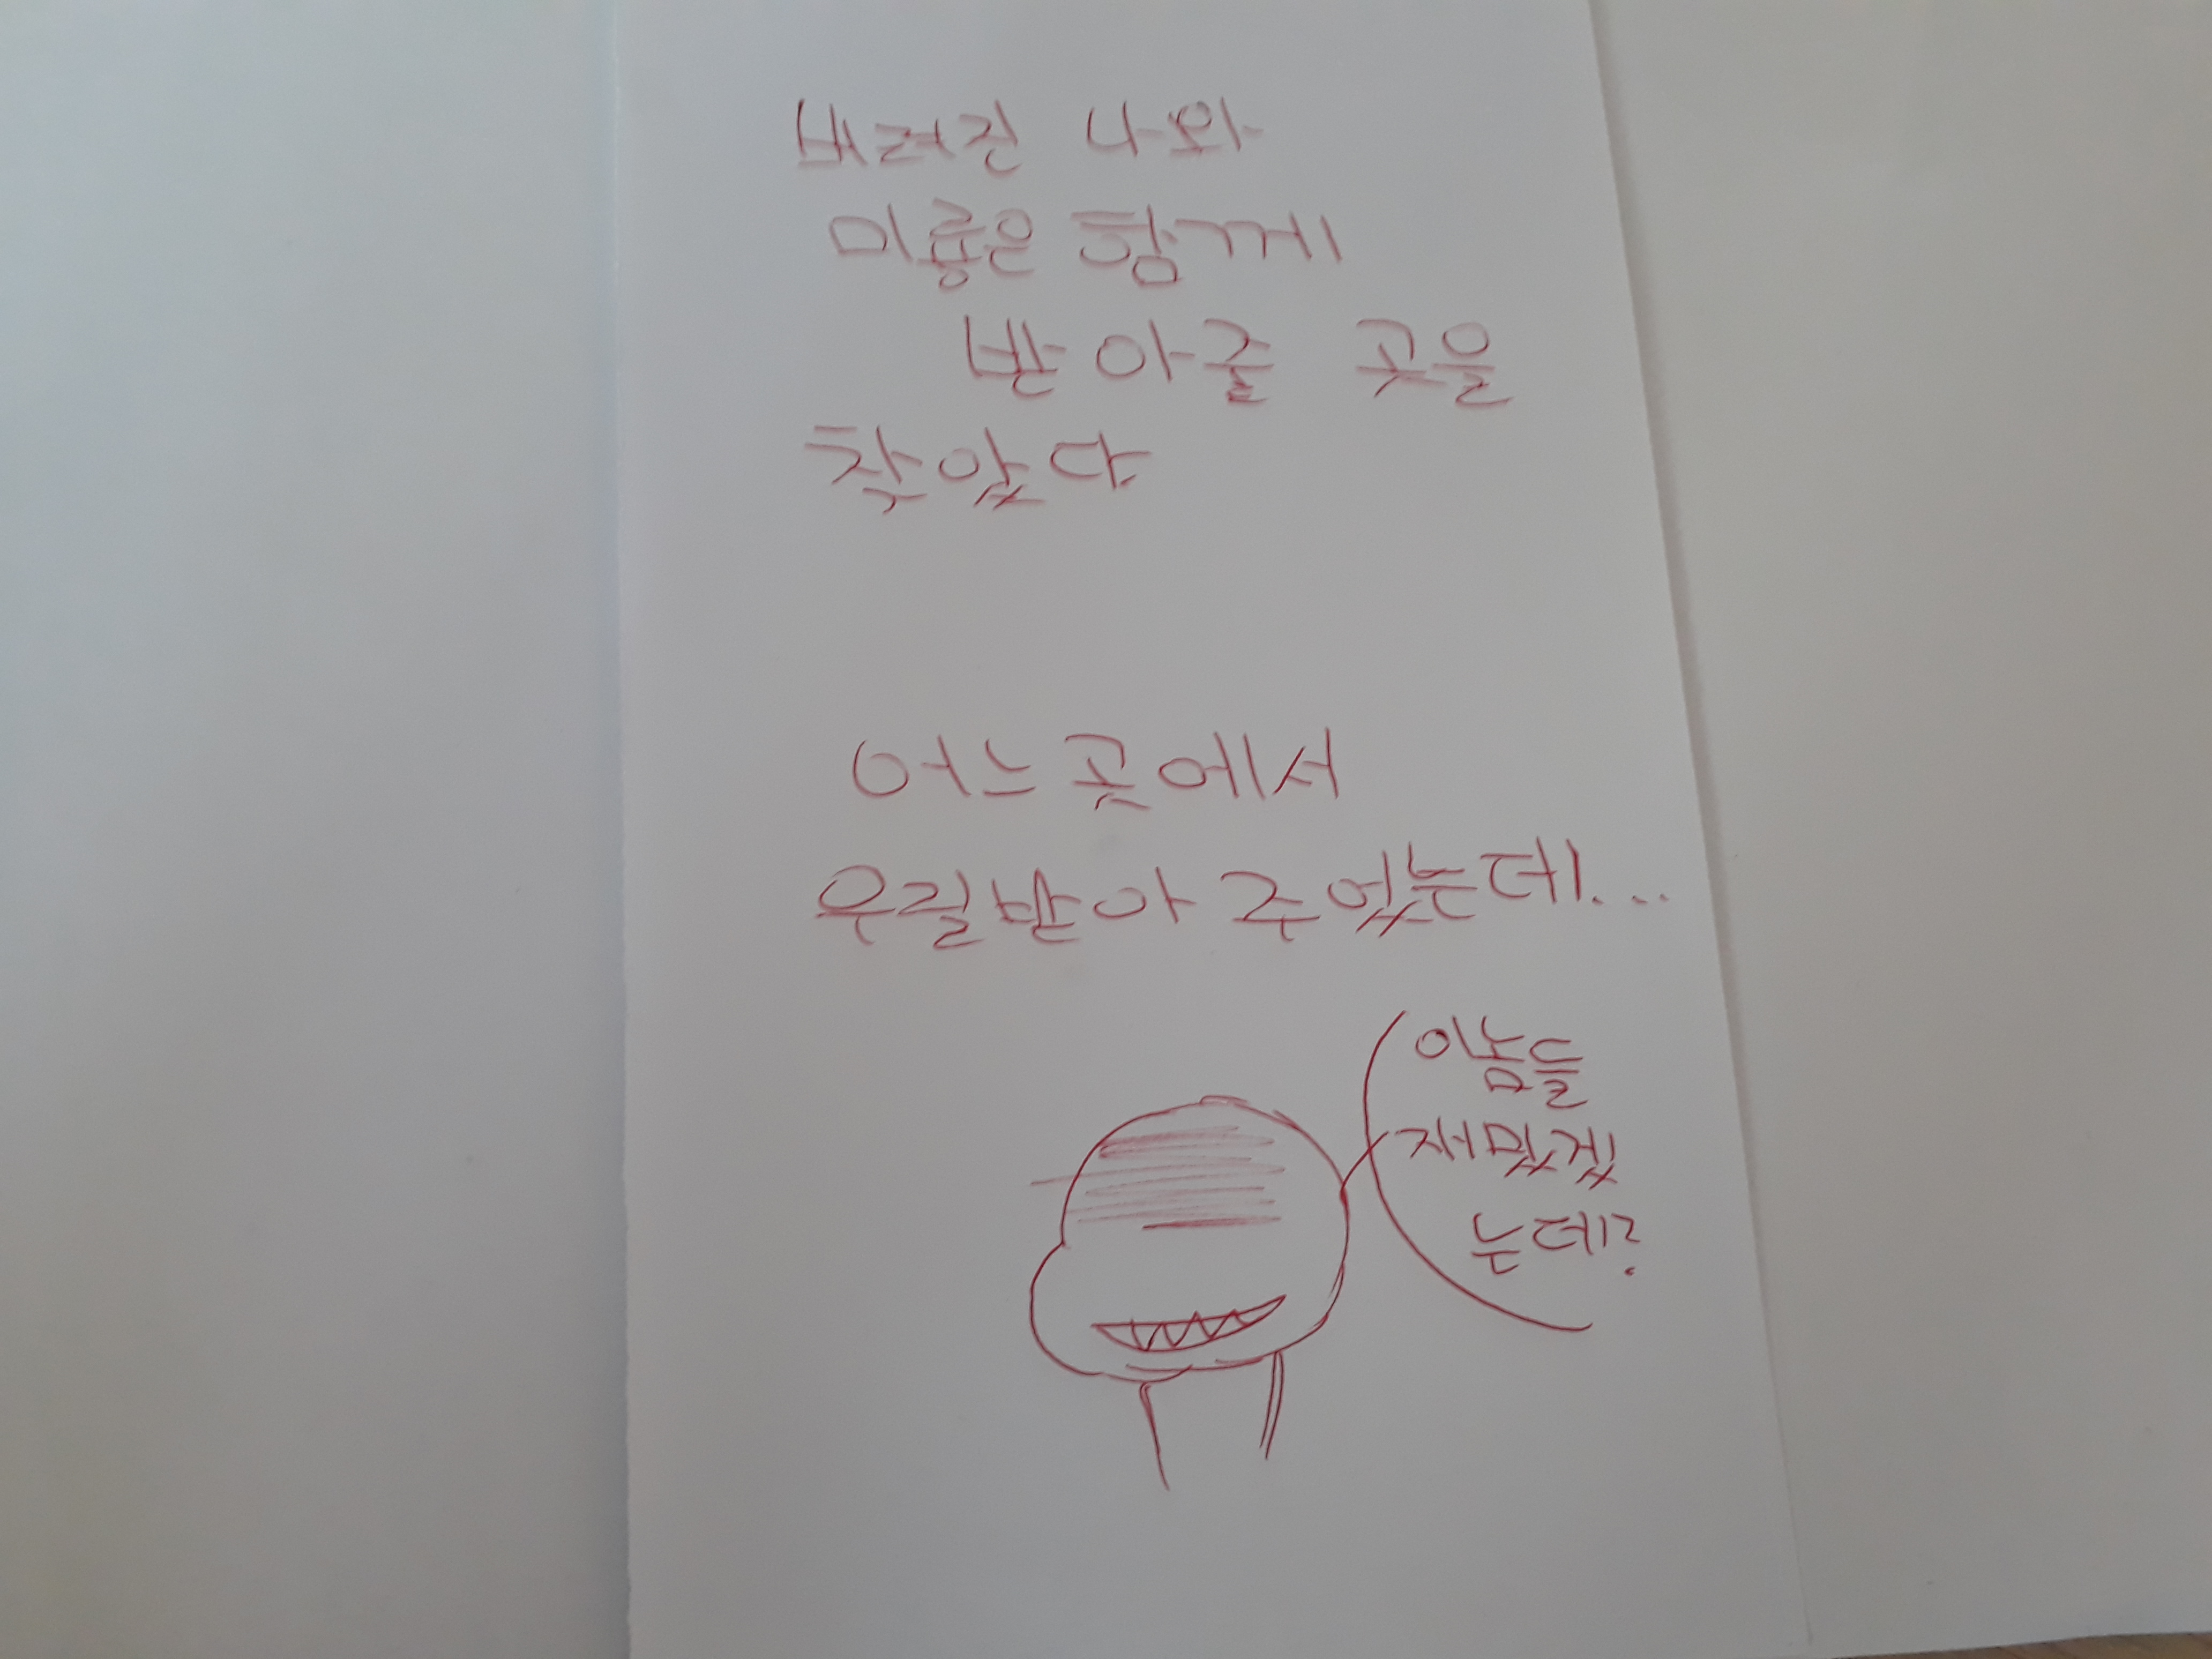 버려진 나와
미룡은 함께
받아줄 곳을
찾았다
어느 곳에서
우릴 받아 주었는데...
이놈들
재밌겠
는데?